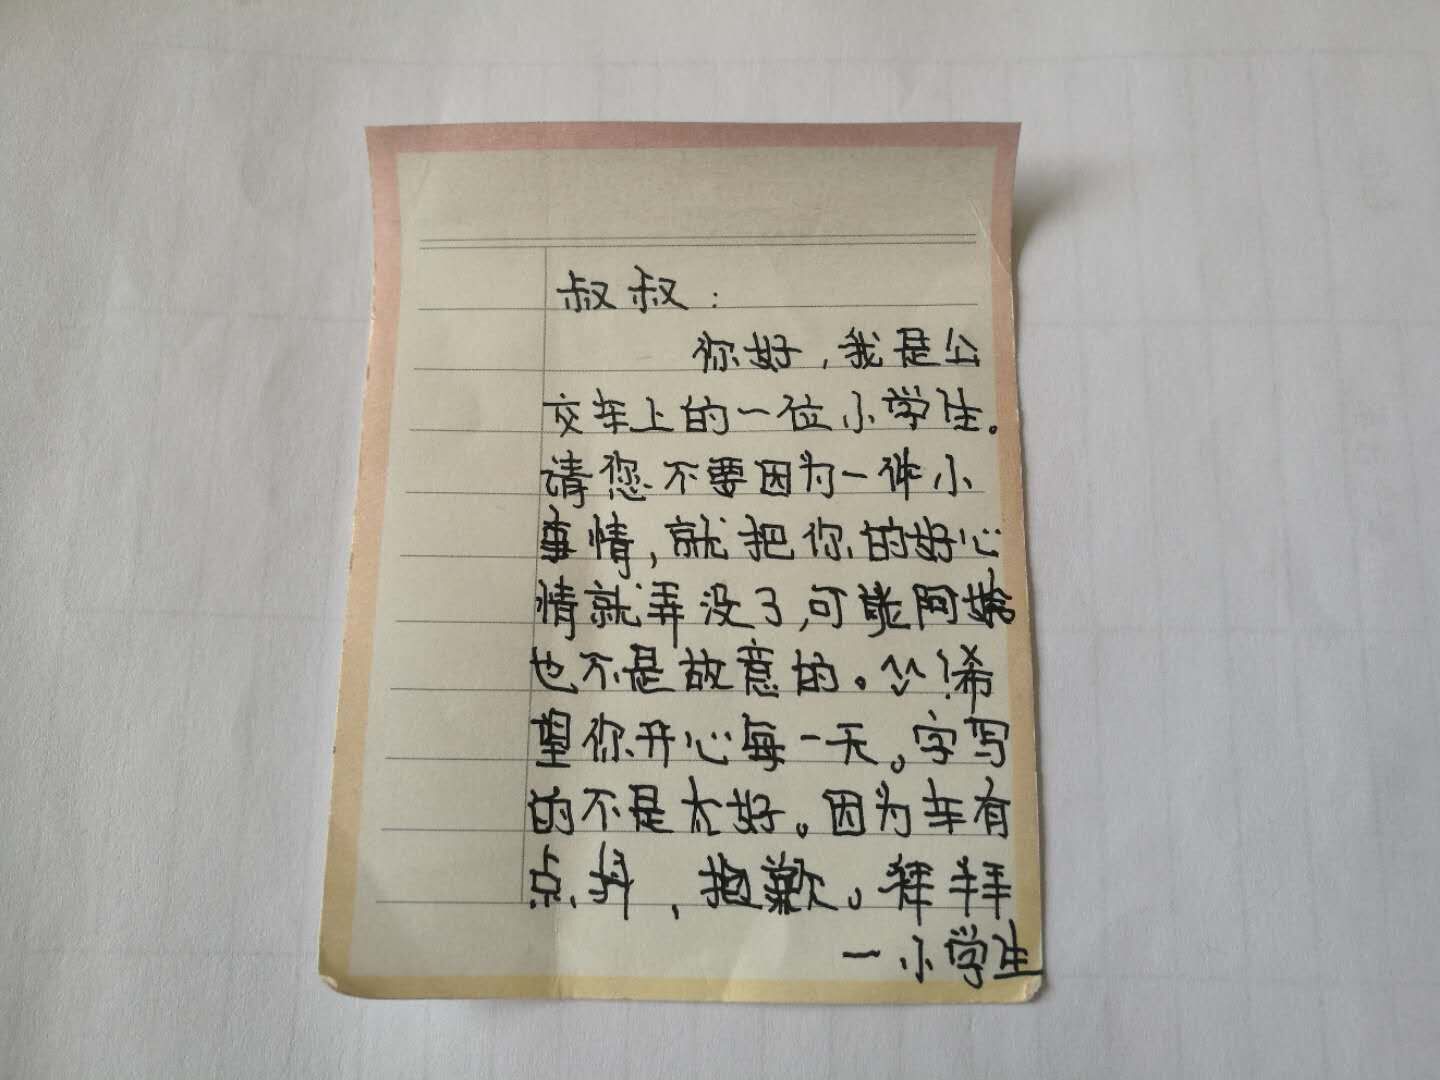 叔叔：
你好，我是公
交车上的一位小学生。
请您不要因为一件小
事情，就把你的好心
情就弄没了，可能阿姨
也不是故意的。^^！希
望你开心每一天。字写
的不是太好。因为车有
点抖，抱歉。拜拜
一小学生